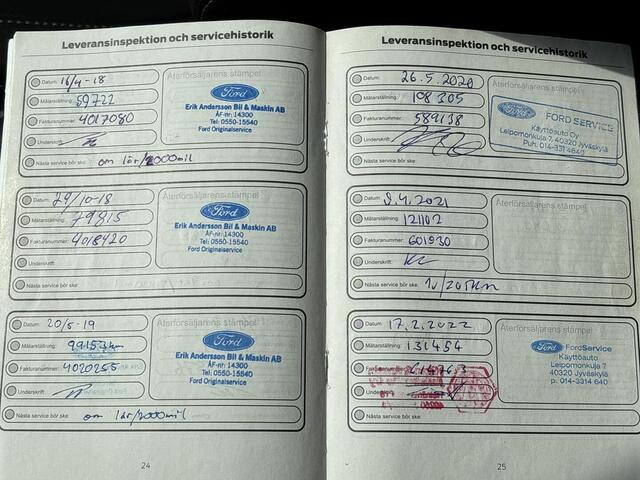 Leveransinspektion och servicehistorik
Datum: 16/4-18
Mätarställning: 59722
Fakturanummer: 4017080
Underskrift:
Nästa service bör ske: om 1år/2000mil
Återförsäljarens stämpel
Ford
Erik Andersson Bil & Maskin AB
ÅF-nr: 14300
Tel: 0550-15540
Ford Originalservice
Datum: 29/10-18
Mätarställning: 79815
Fakturanummer: 4018420
Underskrift:
Nästa service bör ske:
Återförsäljarens stämpel
Ford
Erik Andersson Bil & Maskin AB
ÅF-nr: 14300
Tel: 0550-15540
Ford Originalservice
Datum: 20/5-19
Mätarställning: 99153km
Fakturanummer: 4020255
Underskrift:
Nästa service bör ske: om 1år/2000mil
Återförsäljarens stämpel
Ford
Erik Andersson Bil & Maskin AB
ÅF-nr: 14300
Tel: 0550-15540
Ford Originalservice
24
Leveransinspektion och servicehistorik
Datum: 26.5.2020
Mätarställning: 108305
Fakturanummer: 589138
Underskrift:
Nästa service bör ske:
Återförsäljarens stämpel
Ford FORD SERVICE
Käyttöauto Oy
Leipomonkuja 7, 40320 Jyväskylä
Puh. 014-331 4640
Datum: 9.4.2021
Mätarställning: 121102
Fakturanummer: 601930
Underskrift:
Nästa service bör ske: 1v/20tkm
Återförsäljarens stämpel
Datum: 17.2.2022
Mätarställning: 131454
Fakturanummer:
Underskrift:
Nästa service bör ske:
Återförsäljarens stämpel
Ford FordService
Käyttöauto
Leipomonkuja 7
40320 Jyväskylä
p. 014-3314 640
25